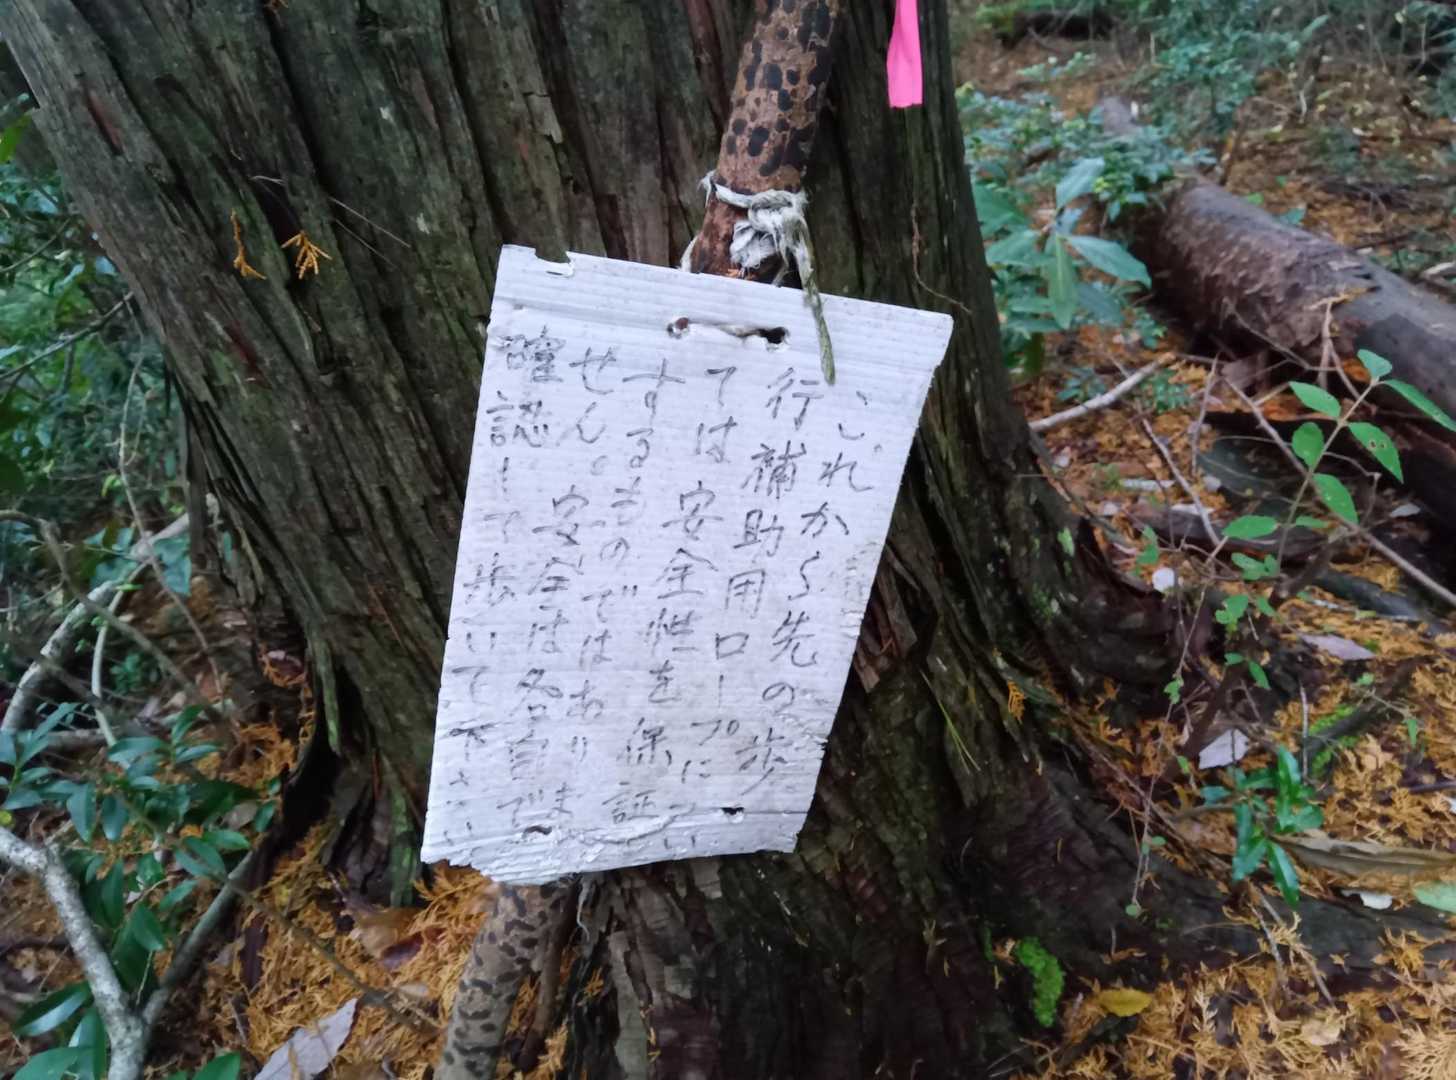 これから先の歩
行補助用ロープについ
ては安全性を保証
するものではありま
せん。安全は各自で
確認して歩いて下さい